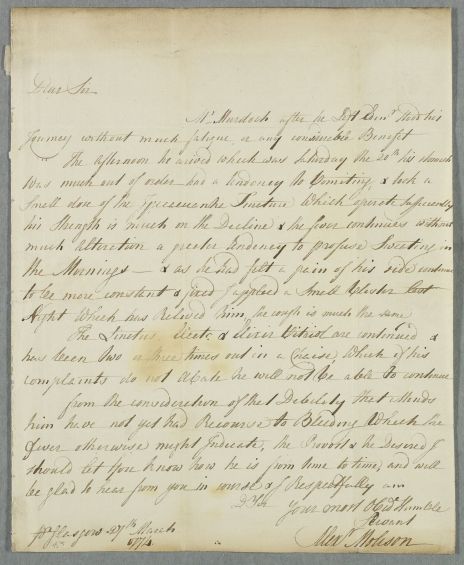 Dear Sir
Mr Murdoch after he Left Edinr stood his
Journey without much fatigue or any considerable Benefit
The afternoon he arived which was Saturday the 20th his stomach
was much out of order had a tendency to Vomiting & took a
small dose of the Ipecacuanha Tincture which operate sufficiently
his Strength is much on the Decline & the fever continues without
much alteration a greater tendency to profuse Sweating in
the Mornings — & as he had felt a pain of his side continue
to be more constant & fixed I applied a small Blister last
Night which has Relieved him, the cough is much the same
The Linctus Elect. & Elixir Vitriol are continued &
has been two or three times out in a Chaise which if his
complaints do not abate he will not be able to continue
from the consideration of that Debility that attends
him have not yet had Recourse to Bleeding which the
fever otherwise might Indicate, the Provost & he Desired I
should let you know how he is from time to time, and will
be glad to hear from you in course & I Respectfully am
D Sir
Your most Obedt Humble
Servant
Glasgow 27th March
1774
Alexr